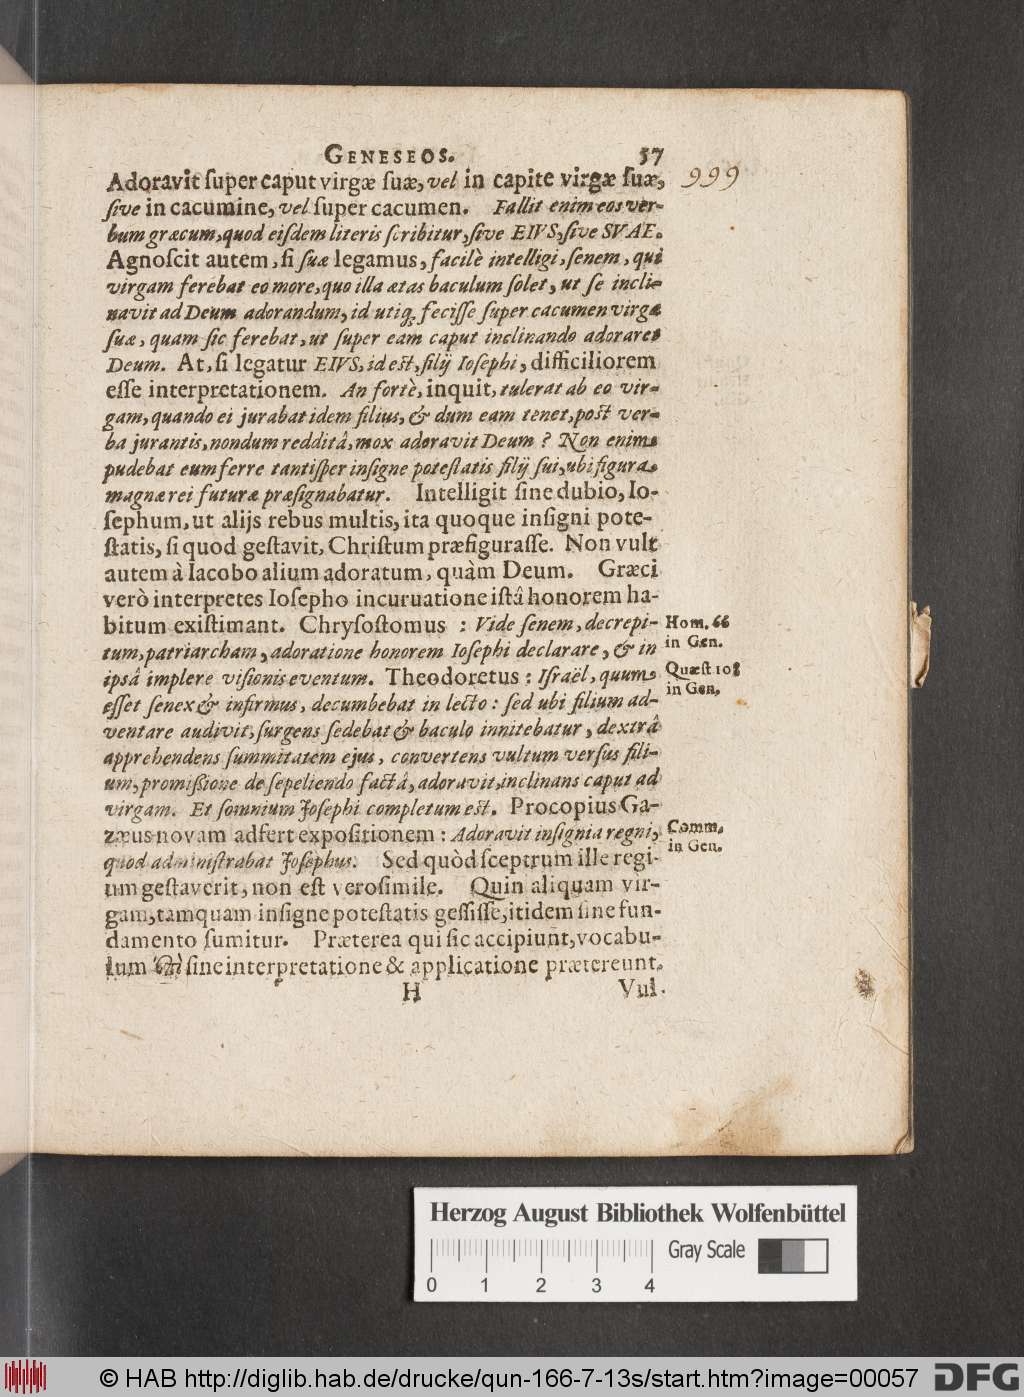 GENESEOS. 57
Adoravit ſuper caput virgæ ſuæ, vel in capite virgæ ſuæ, 999
ſive in cacumine, vel ſuper cacumen. Fallit enim eos ver-
bum græcum, quod eiſdem literis ſcribitur, ſive EIVS, ſive SVAE.
Agnoſcit autem, ſi ſuæ legamus, facilè intelligi, ſenem, qui
virgam ferebat eo more, quo illa ætas baculum ſolet, ut ſe incli-
navit ad Deum adorandum, id utiq; feciſſe ſuper cacumen virgæ
ſuæ, quam ſic ferebat, ut ſuper eam caput inclinando adoraret
Deum. At, ſi legatur EIVS, id eſt, filij Ioſephi, difficiliorem
eſſe interpretationem. An fortè, inquit, tulerat ab eo vir-
gam, quando ei jurabat idem filius, & dum eam tenet, poſt ver-
ba jurantis, nondum redditâ, mox adoravit Deum? Non enim
pudebat eum ferre tantiſper inſigne poteſtatis filij ſui, ubi figura
magnæ rei futuræ præſignabatur. Intelligit ſine dubio, Io-
ſephum, ut alijs rebus multis, ita quoque inſigni pote-
ſtatis, ſi quod geſtavit, Chriſtum præfiguraſſe. Non vult
autem à Iacobo alium adoratum, quàm Deum. Græci
verò interpretes Ioſepho incuruatione iſtâ honorem ha-
bitum existimant. Chryſoſtomus : Vide ſenem, decrepi-
tum, patriarcham, adoratione honorem Ioſephi declarare, & in
ipsâ implere viſionis eventum. Theodoretus : Iſraël, quum
eſſet ſenex & infirmus, decumbebat in lecto : ſed ubi filium ad-
ventare audivit, ſurgens ſedebat & baculo innitebatur, dextrâ
apprehendens ſummitatem ejus, convertens vultum verſus fili-
um, promißione de ſepeliendo factâ, adoravit, inclinans caput ad
virgam. Et ſomnium Joſephi completum eſt. Procopius Ga-
zæus novam adfert expoſitionem : Adoravit inſignia regni,
quod adminiſtrabat Joſephus. Sed quòd ſceptrum ille regi-
um geſtaverit, non eſt veroſimile. Quin aliquam vir-
gam, tamquam inſigne poteſtatis geſſiſſe, itidem ſine fun-
damento ſumitur. Præterea qui ſic accipiunt, vocabu-
lum ſine interpretatione & applicatione prætereunt.
H Vul.
Hom. 66
in Gen.
Quæſt 108
in Gen.
Comm.
in Gen.
Herzog August Bibliothek Wolfenbüttel
Gray Scale
0 1 2 3 4
© HAB http://diglib.hab.de/drucke/qun-166-7-13s/start.htm?image=00057 DFG